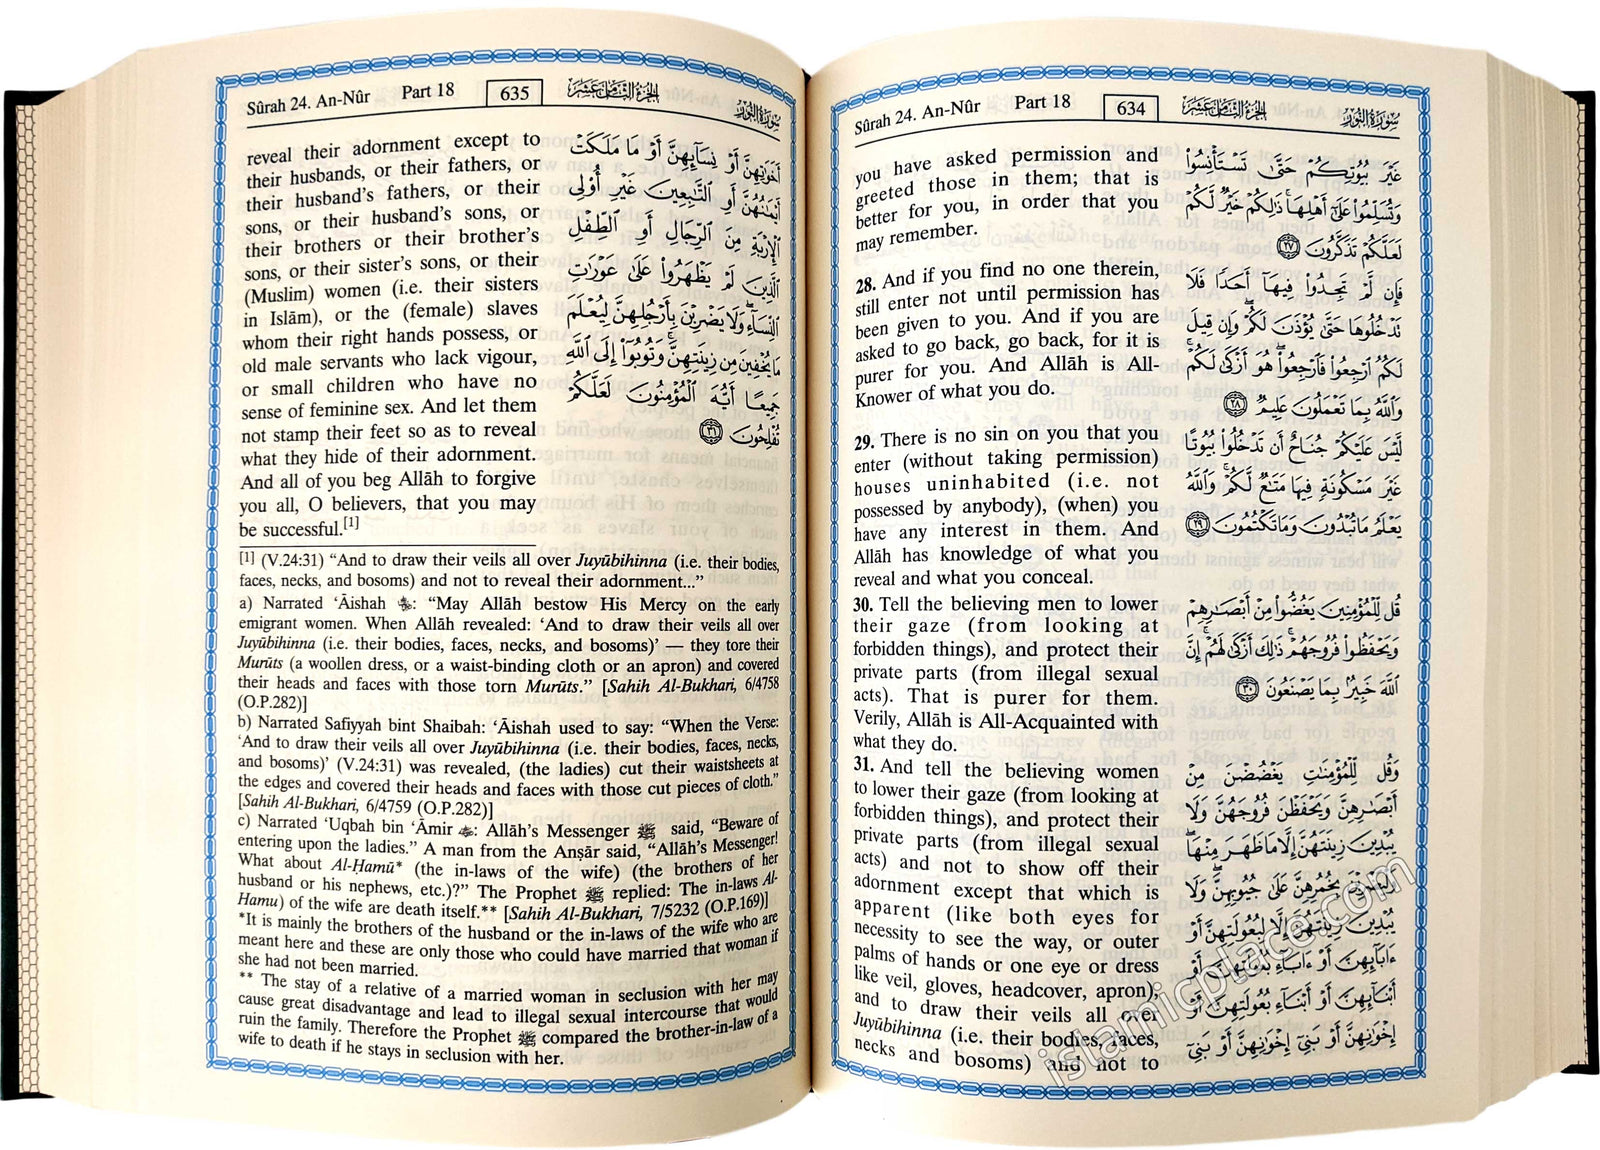 Sûrah 24. An-Nûr Part 18 634 الجزء الثامن عشر سورة النور
you have asked permission and
greeted those in them; that is
better for you, in order that you
may remember.
28. And if you find no one therein,
still enter not until permission has
been given to you. And if you are
asked to go back, go back, for it is
purer for you. And Allâh is All-
Knower of what you do.
29. There is no sin on you that you
enter (without taking permission)
houses uninhabited (i.e. not
possessed by anybody), (when) you
have any interest in them. And
Allâh has knowledge of what you
reveal and what you conceal.
30. Tell the believing men to lower
their gaze (from looking at
forbidden things), and protect their
private parts (from illegal sexual
acts). That is purer for them.
Verily, Allâh is All-Acquainted with
what they do.
31. And tell the believing women
to lower their gaze (from looking at
forbidden things), and protect their
private parts (from illegal sexual
acts) and not to show off their
adornment except that which is
apparent (like both eyes for
necessity to see the way, or outer
palms of hands or one eye or dress
like veil, gloves, headcover, apron),
and to draw their veils all over
Juyûbihinna (i.e. their bodies, faces,
necks and bosoms) and not to
غَيْرَ بُيُوتِكُمْ حَتَّىٰ تَسْتَأْنِسُوا۟
وَتُسَلِّمُوا۟ عَلَىٰٓ أَهْلِهَا ۚ ذَٰلِكُمْ خَيْرٌ لَّكُمْ
لَعَلَّكُمْ تَذَكَّرُونَ ٢٧
فَإِن لَّمْ تَجِدُوا۟ فِيهَآ أَحَدًا فَلَا
تَدْخُلُوهَا حَتَّىٰ يُؤْذَنَ لَكُمْ ۖ وَإِن قِيلَ
لَكُمُ ٱرْجِعُوا۟ فَٱرْجِعُوا۟ ۖ هُوَ أَزْكَىٰ لَكُمْ ۚ
وَٱللَّهُ بِمَا تَعْمَلُونَ عَلِيمٌ ٢٨
لَّيْسَ عَلَيْكُمْ جُنَاحٌ أَن تَدْخُلُوا۟ بُيُوتًا
غَيْرَ مَسْكُونَةٍ فِيهَا مَتَٰعٌ لَّكُمْ ۚ وَٱللَّهُ
يَعْلَمُ مَا تُبْدُونَ وَمَا تَكْتُمُونَ ٢٩
قُل لِّلْمُؤْمِنِينَ يَغُضُّوا۟ مِنْ أَبْصَٰرِهِمْ
وَيَحْفَظُوا۟ فُرُوجَهُمْ ۚ ذَٰلِكَ أَزْكَىٰ لَهُمْ ۗ إِنَّ
ٱللَّهَ خَبِيرٌۢ بِمَا يَصْنَعُونَ ٣٠
وَقُل لِّلْمُؤْمِنَٰتِ يَغْضُضْنَ مِنْ
أَبْصَٰرِهِنَّ وَيَحْفَظْنَ فُرُوجَهُنَّ وَلَا
يُبْدِينَ زِينَتَهُنَّ إِلَّا مَا ظَهَرَ مِنْهَا ۖ
وَلْيَضْرِبْنَ بِخُمُرِهِنَّ عَلَىٰ جُيُوبِهِنَّ ۖ وَلَا
يُبْدِينَ زِينَتَهُنَّ إِلَّا لِبُعُولَتِهِنَّ أَوْ
ءَابَآئِهِنَّ أَوْ ءَابَآءِ بُعُولَتِهِنَّ أَوْ
أَبْنَآئِهِنَّ أَوْ أَبْنَآءِ بُعُولَتِهِنَّ أَوْ
إِخْوَٰنِهِنَّ أَوْ بَنِىٓ إِخْوَٰنِهِنَّ أَوْ بَنِىٓ
Sûrah 24. An-Nûr Part 18 635 الجزء الثامن عشر سورة النور
reveal their adornment except to
their husbands, or their fathers, or
their husband's fathers, or their
sons, or their husband's sons, or
their brothers or their brother's
sons, or their sister's sons, or their
(Muslim) women (i.e. their sisters
in Islâm), or the (female) slaves
whom their right hands possess, or
old male servants who lack vigour,
or small children who have no
sense of feminine sex. And let them
not stamp their feet so as to reveal
what they hide of their adornment.
And all of you beg Allâh to forgive
you all, O believers, that you may
be successful.[1]
أَخَوَٰتِهِنَّ أَوْ نِسَآئِهِنَّ أَوْ مَا مَلَكَتْ
أَيْمَٰنُهُنَّ أَوِ ٱلتَّٰبِعِينَ غَيْرِ أُو۟لِى
ٱلْإِرْبَةِ مِنَ ٱلرِّجَالِ أَوِ ٱلطِّفْلِ
ٱلَّذِينَ لَمْ يَظْهَرُوا۟ عَلَىٰ عَوْرَٰتِ
ٱلنِّسَآءِ ۖ وَلَا يَضْرِبْنَ بِأَرْجُلِهِنَّ لِيُعْلَمَ
مَا يُخْفِينَ مِن زِينَتِهِنَّ ۚ وَتُوبُوٓا۟ إِلَى ٱللَّهِ
جَمِيعًا أَيُّهَ ٱلْمُؤْمِنُونَ لَعَلَّكُمْ
تُفْلِحُونَ ٣١
[1] (V.24:31) "And to draw their veils all over Juyûbihinna (i.e. their bodies,
faces, necks, and bosoms) and not to reveal their adornment..."
a) Narrated 'Āishah رضي الله عنها: "May Allâh bestow His Mercy on the early
emigrant women. When Allâh revealed: 'And to draw their veils all over
Juyûbihinna (i.e. their bodies, faces, necks, and bosoms)' — they tore their
Murûts (a woollen dress, or a waist-binding cloth or an apron) and covered
their heads and faces with those torn Murûts." [Sahih Al-Bukhari, 6/4758
(O.P.282)]
b) Narrated Safiyyah bint Shaibah: 'Āishah used to say: "When the Verse:
'And to draw their veils all over Juyûbihinna (i.e. their bodies, faces, necks,
and bosoms)' (V.24:31) was revealed, (the ladies) cut their waistsheets at
the edges and covered their heads and faces with those cut pieces of cloth."
[Sahih Al-Bukhari, 6/4759 (O.P.282)]
c) Narrated 'Uqbah bin 'Āmir رضي الله عنه: Allâh's Messenger ﷺ said, "Beware of
entering upon the ladies." A man from the Anṣār said, "Allâh's Messenger!
What about Al-Ḥamû* (the in-laws of the wife) (the brothers of her
husband or his nephews, etc.)?" The Prophet ﷺ replied: The in-laws Al-
Hamu) of the wife are death itself.** [Sahih Al-Bukhari, 7/5232 (O.P.169)]
*It is mainly the brothers of the husband or the in-laws of the wife who are
meant here and these are only those who could have married that woman if
she had not been married.
** The stay of a relative of a married woman in seclusion with her may
cause great disadvantage and lead to illegal sexual intercourse that would
ruin the family. Therefore the Prophet ﷺ compared the brother-in-law of a
wife to death if he stays in seclusion with her.
islamicplace.com